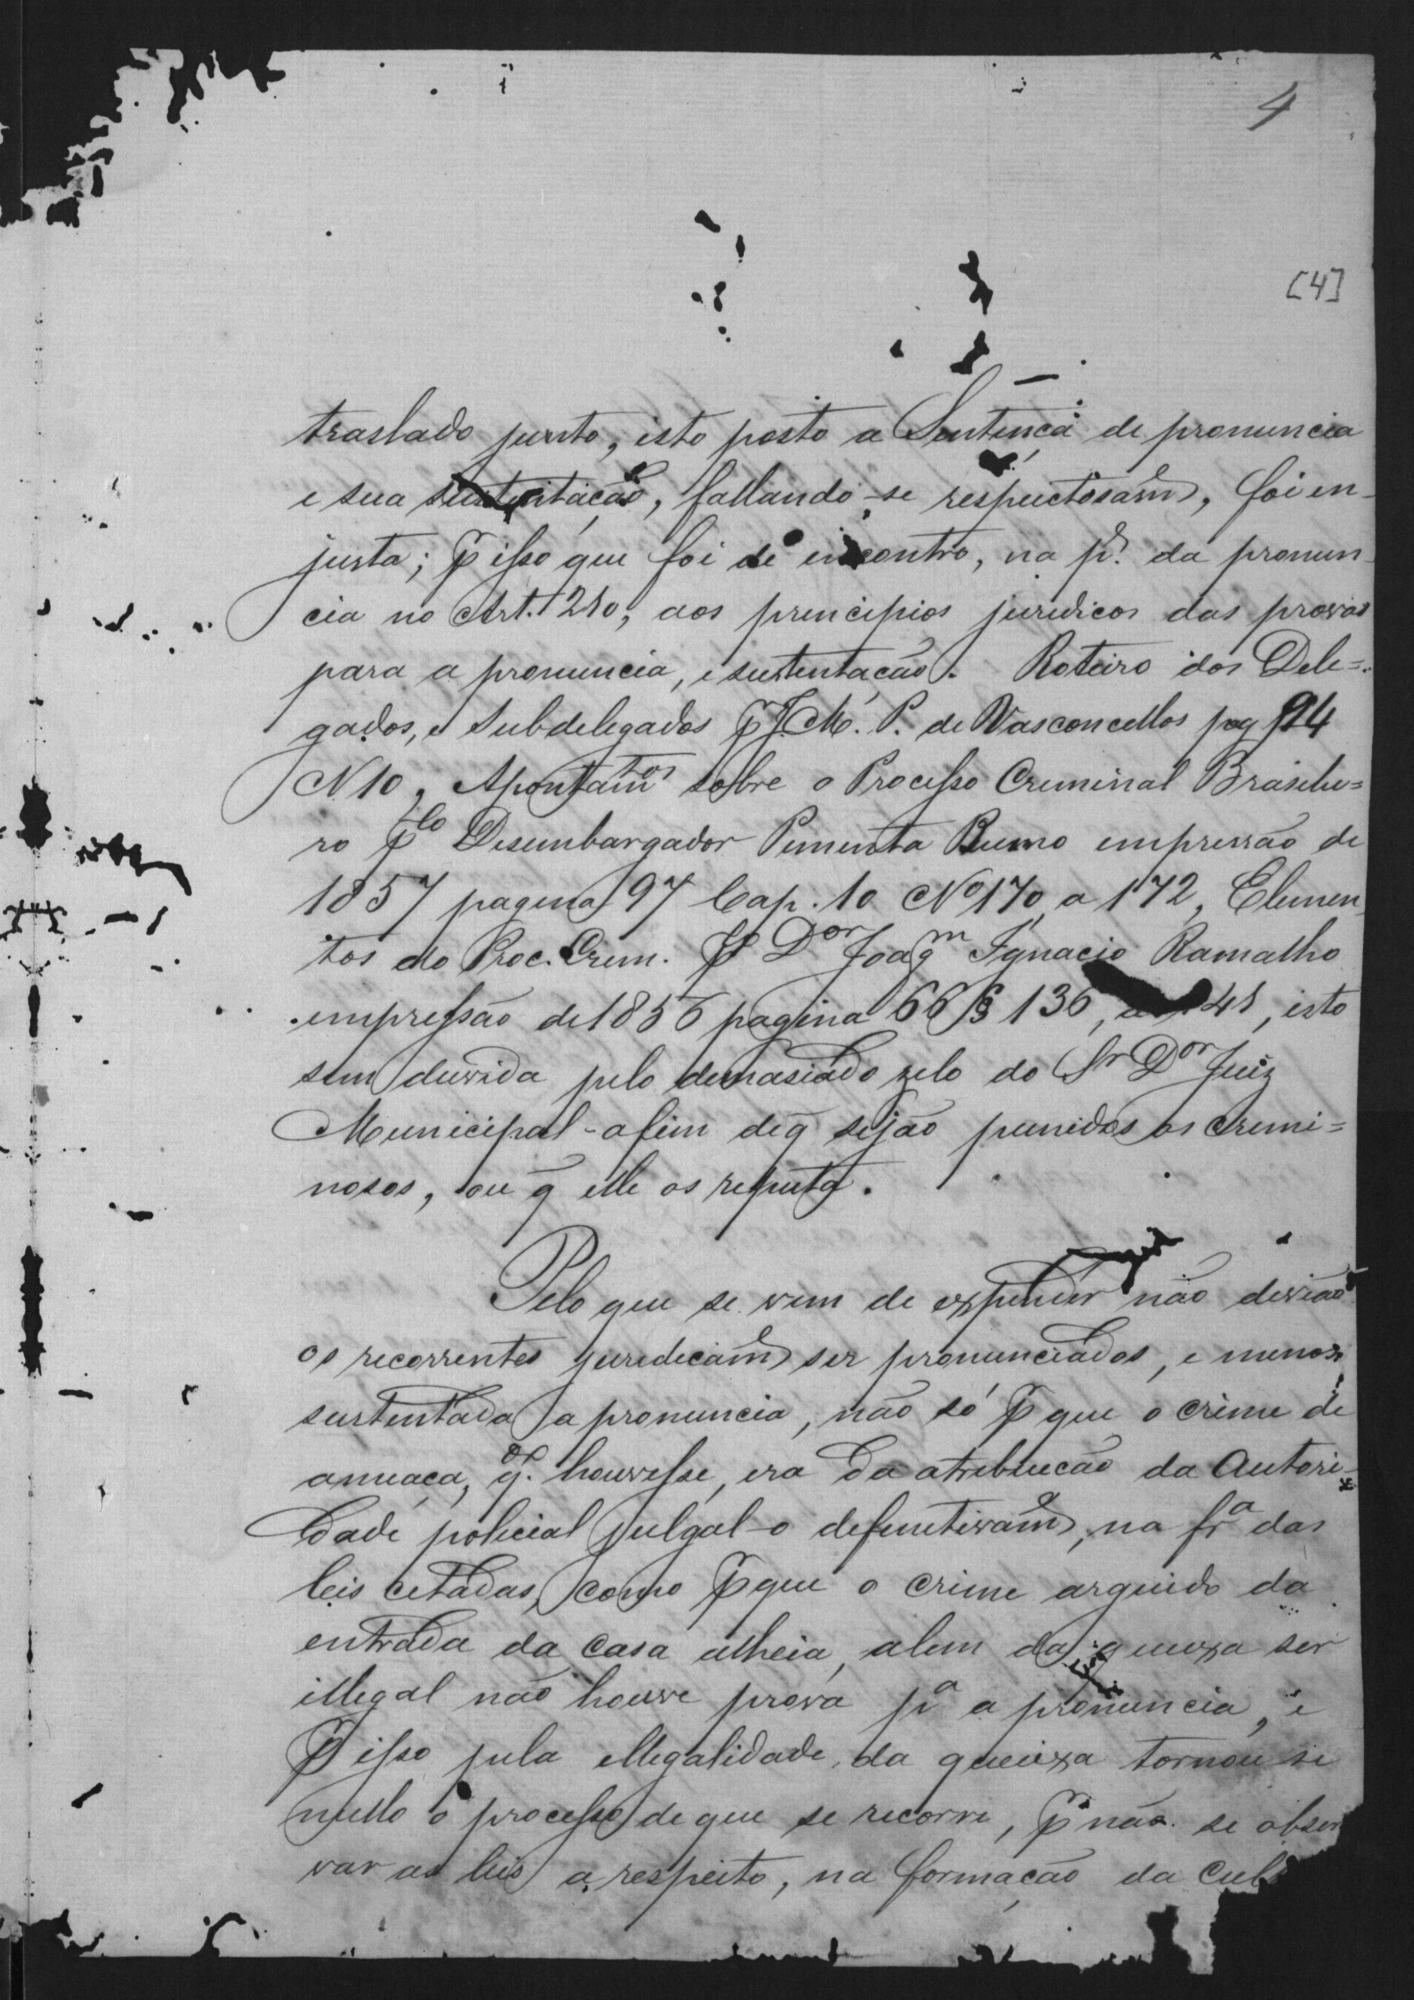 4
[4]
traslado junto, isto posto a Sentença de pronuncia
e sua sustentação, fallando-se respectosam.e, foi en-
justa; p isso que foi de encontro, na p.e da pronun
cia no Art. 210, aos principios juridicos das provas
para a pronuncia, e sustentação. Roteiro dos Dele=
gados, e Subdelegados p J. M. P. de Vasconcellos pag 94
N 10, Apontam.tos sobre o Processo Criminal Brasilei=
ro p.lo Desembargador Pimenta Bueno impressão de
1857 pagina 97 Cap. 10 Nº 170 a 172, Elemen
tos do Proc. Crim. p D.or Joaq.m Ignacio Ramalho
impressão de 1856 pagina 66 § 136, a 141, isto
sem duvida pelo demasiado zelo do Sr D.or Juiz
Municipal - afim de q̃ sejão punidos os crimi=
nosos, ou q̃ elle os reputa.
Pelo que se vem de expender não devião
os recorrentes juridicam.e ser pronunciados, e menos
sustentada a pronuncia, não só p que o crime de
ameaça, q.do houvesse, era da atribuicão da Autori-
dade policial julgal-o definitivam.e, na fr.a das
leis citadas, como p que o crime arguido da
entrada da casa alheia, alem da queixa ser
illegal não houve prova p.a a pronuncia, e
p isso pela illegalidade da queixa tornou se
nullo o processo de que se recorre, p não se obser
var as leis a respeito, na formação da Culp